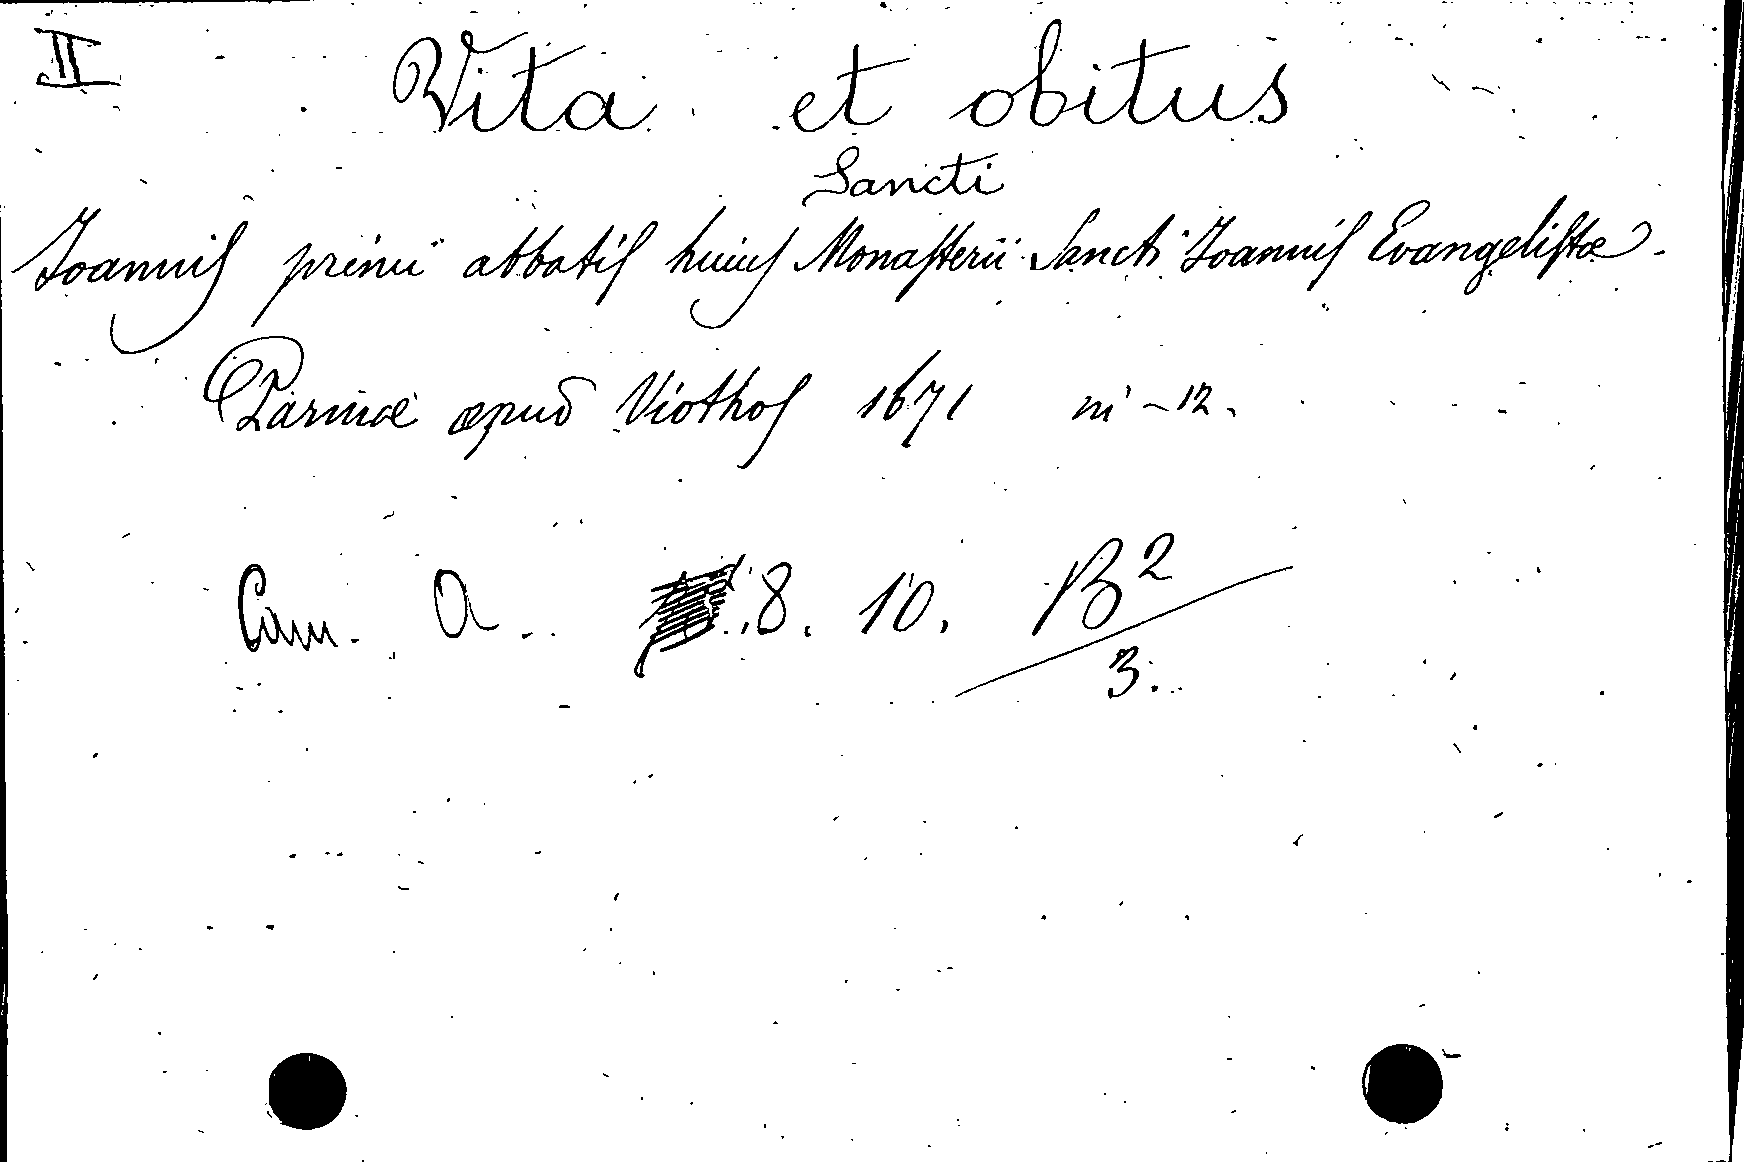 II
Vita et obitus
Sancti
Joannis primi abbatis huius Monasterii Sancti Joannis Evangelistæ.
Parmæ apud Viothos 1671 in -12.
Cam. A. 8. 10. B2
3.